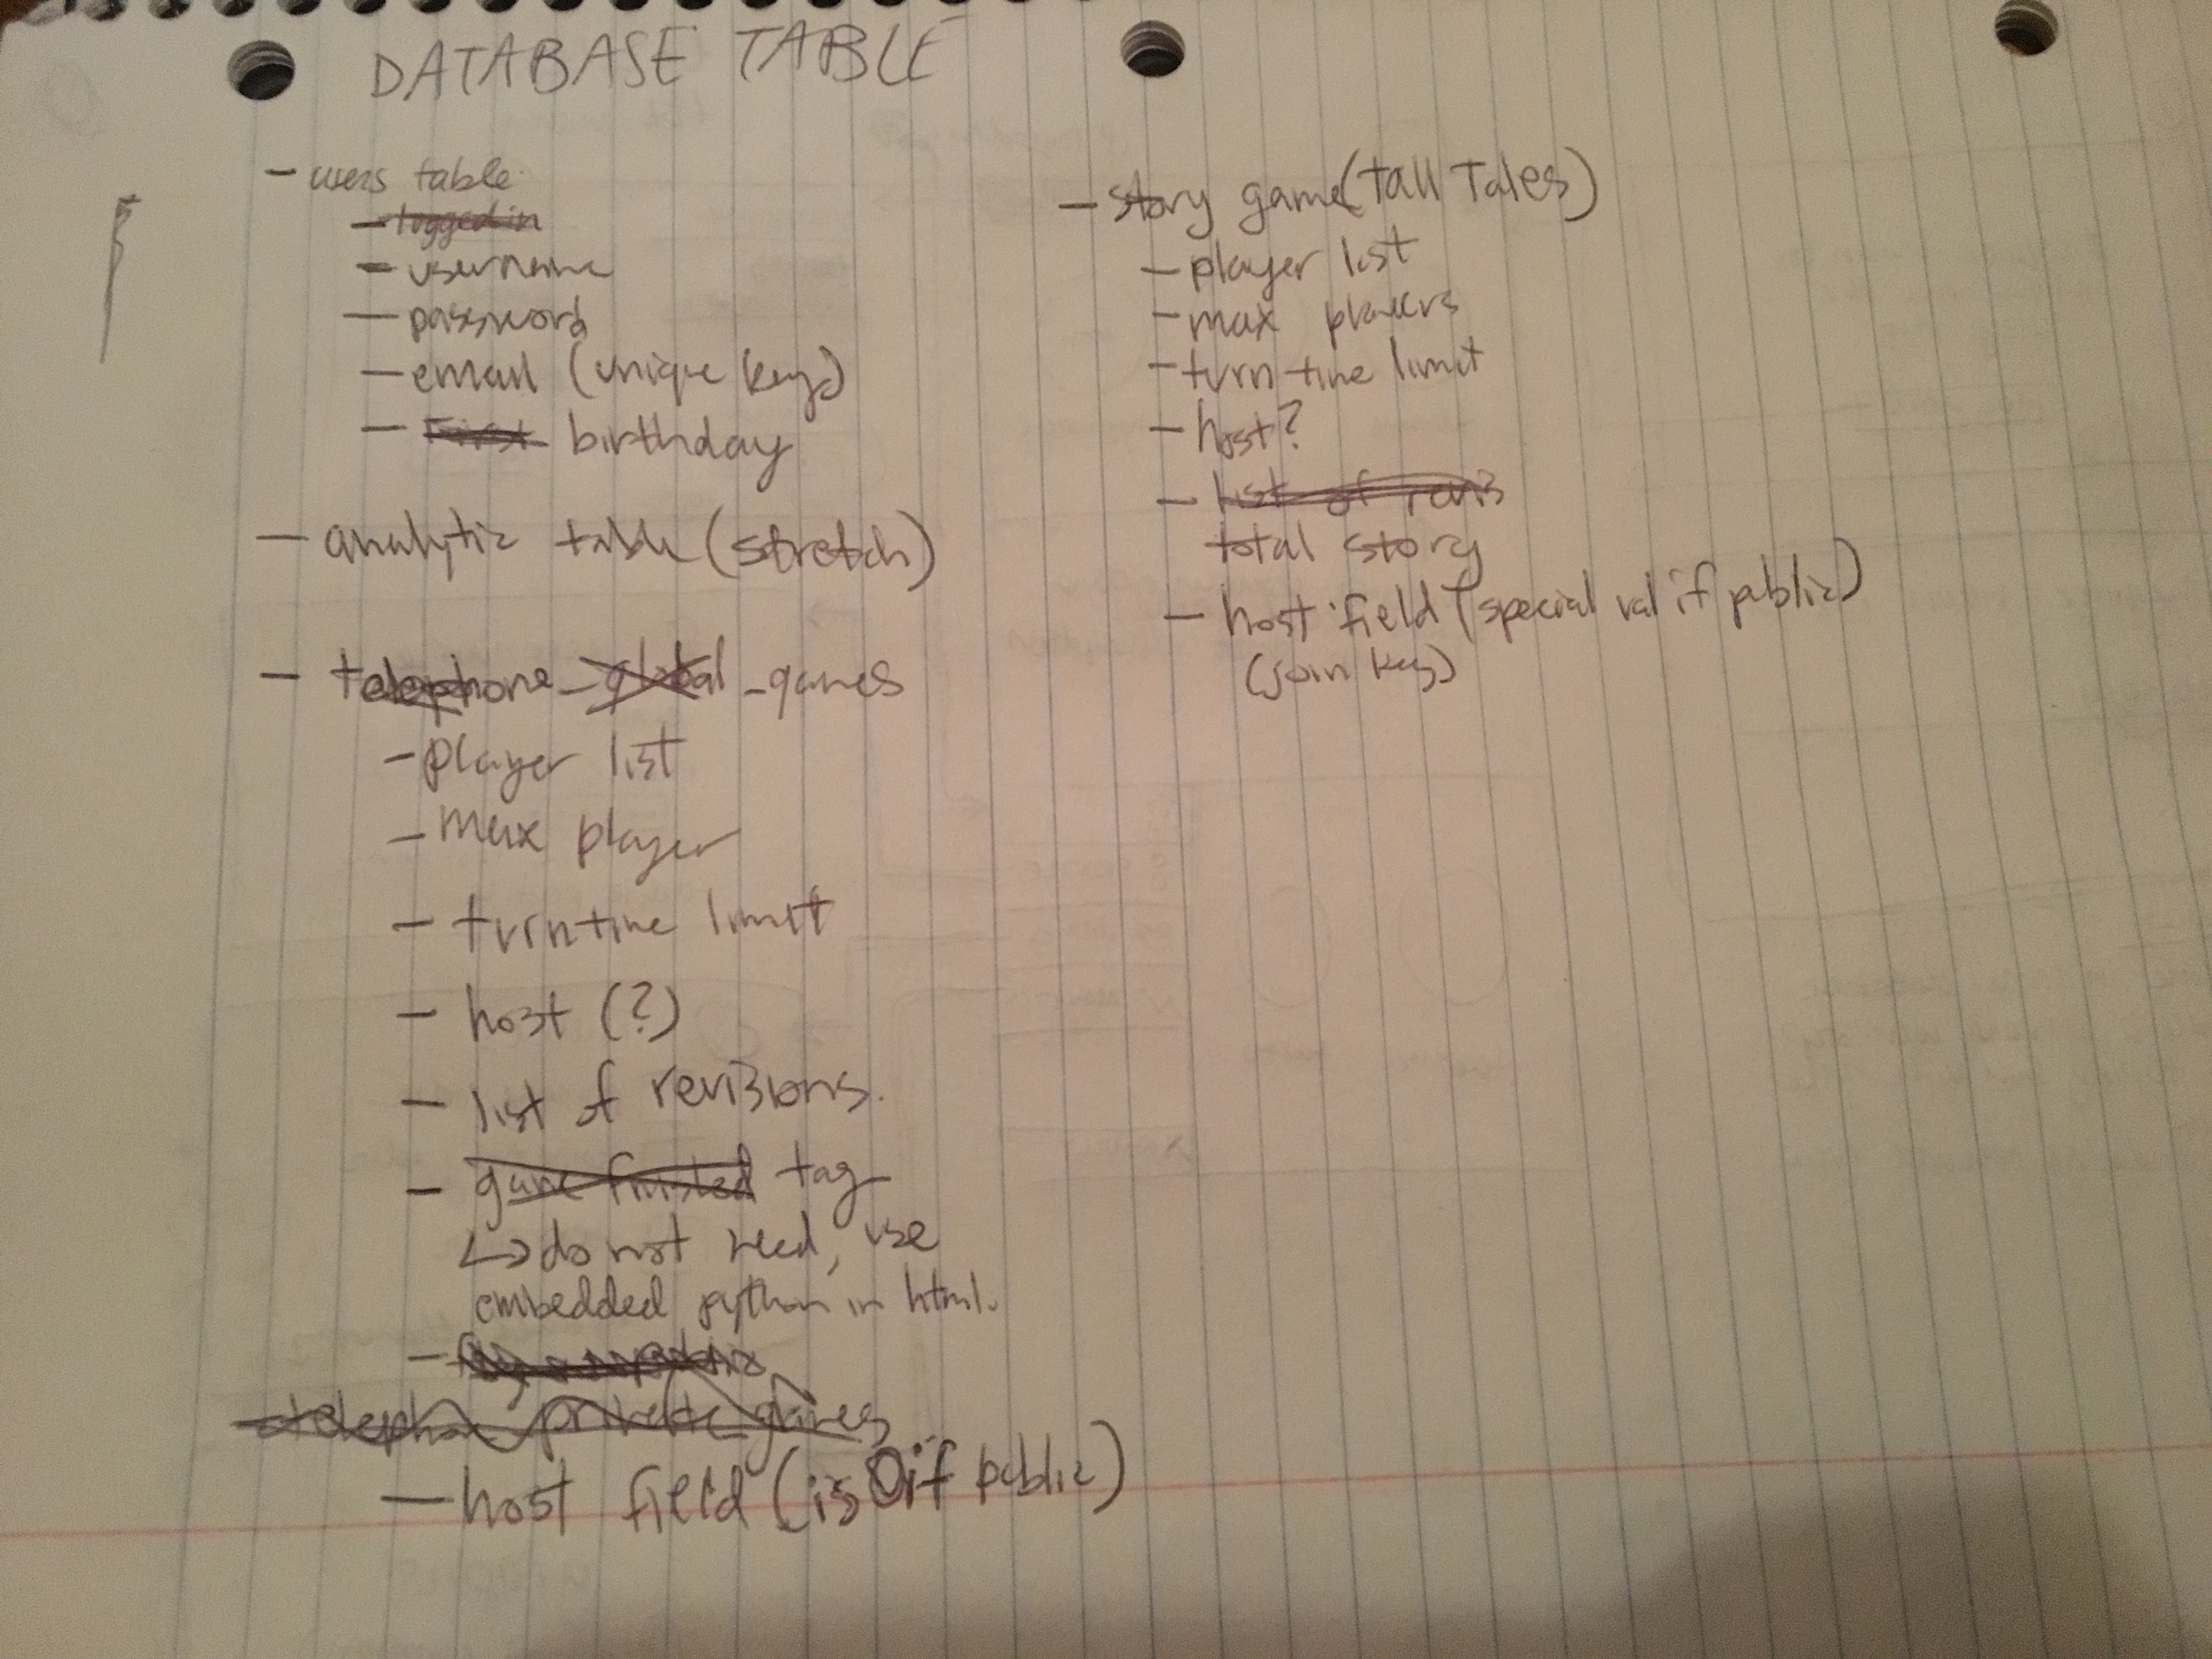 DATABASE TABLE
- users table
- logged in
- username
- password
- email (unique key)
- First birthday
- analytic table (stretch)
- telephone_global_games
- player list
- max player
- turn time limit
- host (?)
- list of revisions.
- game finished tag
↳ do not need, use
embedded python in html.
- telephone private games
- host field (is 0 if public)
- story game (Tall Tales)
- player list
- max players
- turn time limit
- host?
- list of revis
total story
- host field (special val if public)
(join key)